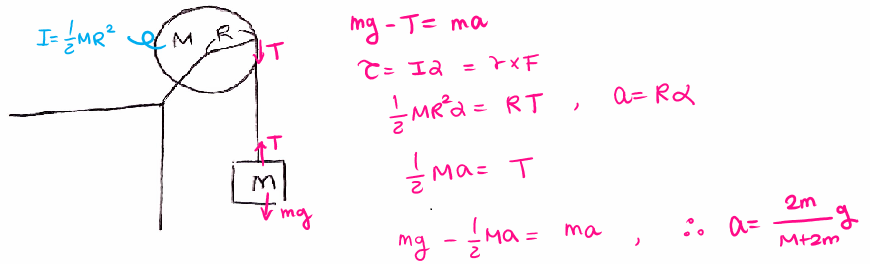 I = ½MR²
M
R
T
T
m
mg
mg - T = ma
τ = Iα = r × F
½MR²α = RT , a = Rα
½Ma = T
mg - ½Ma = ma , ∴ a = 2m/(M+2m) g